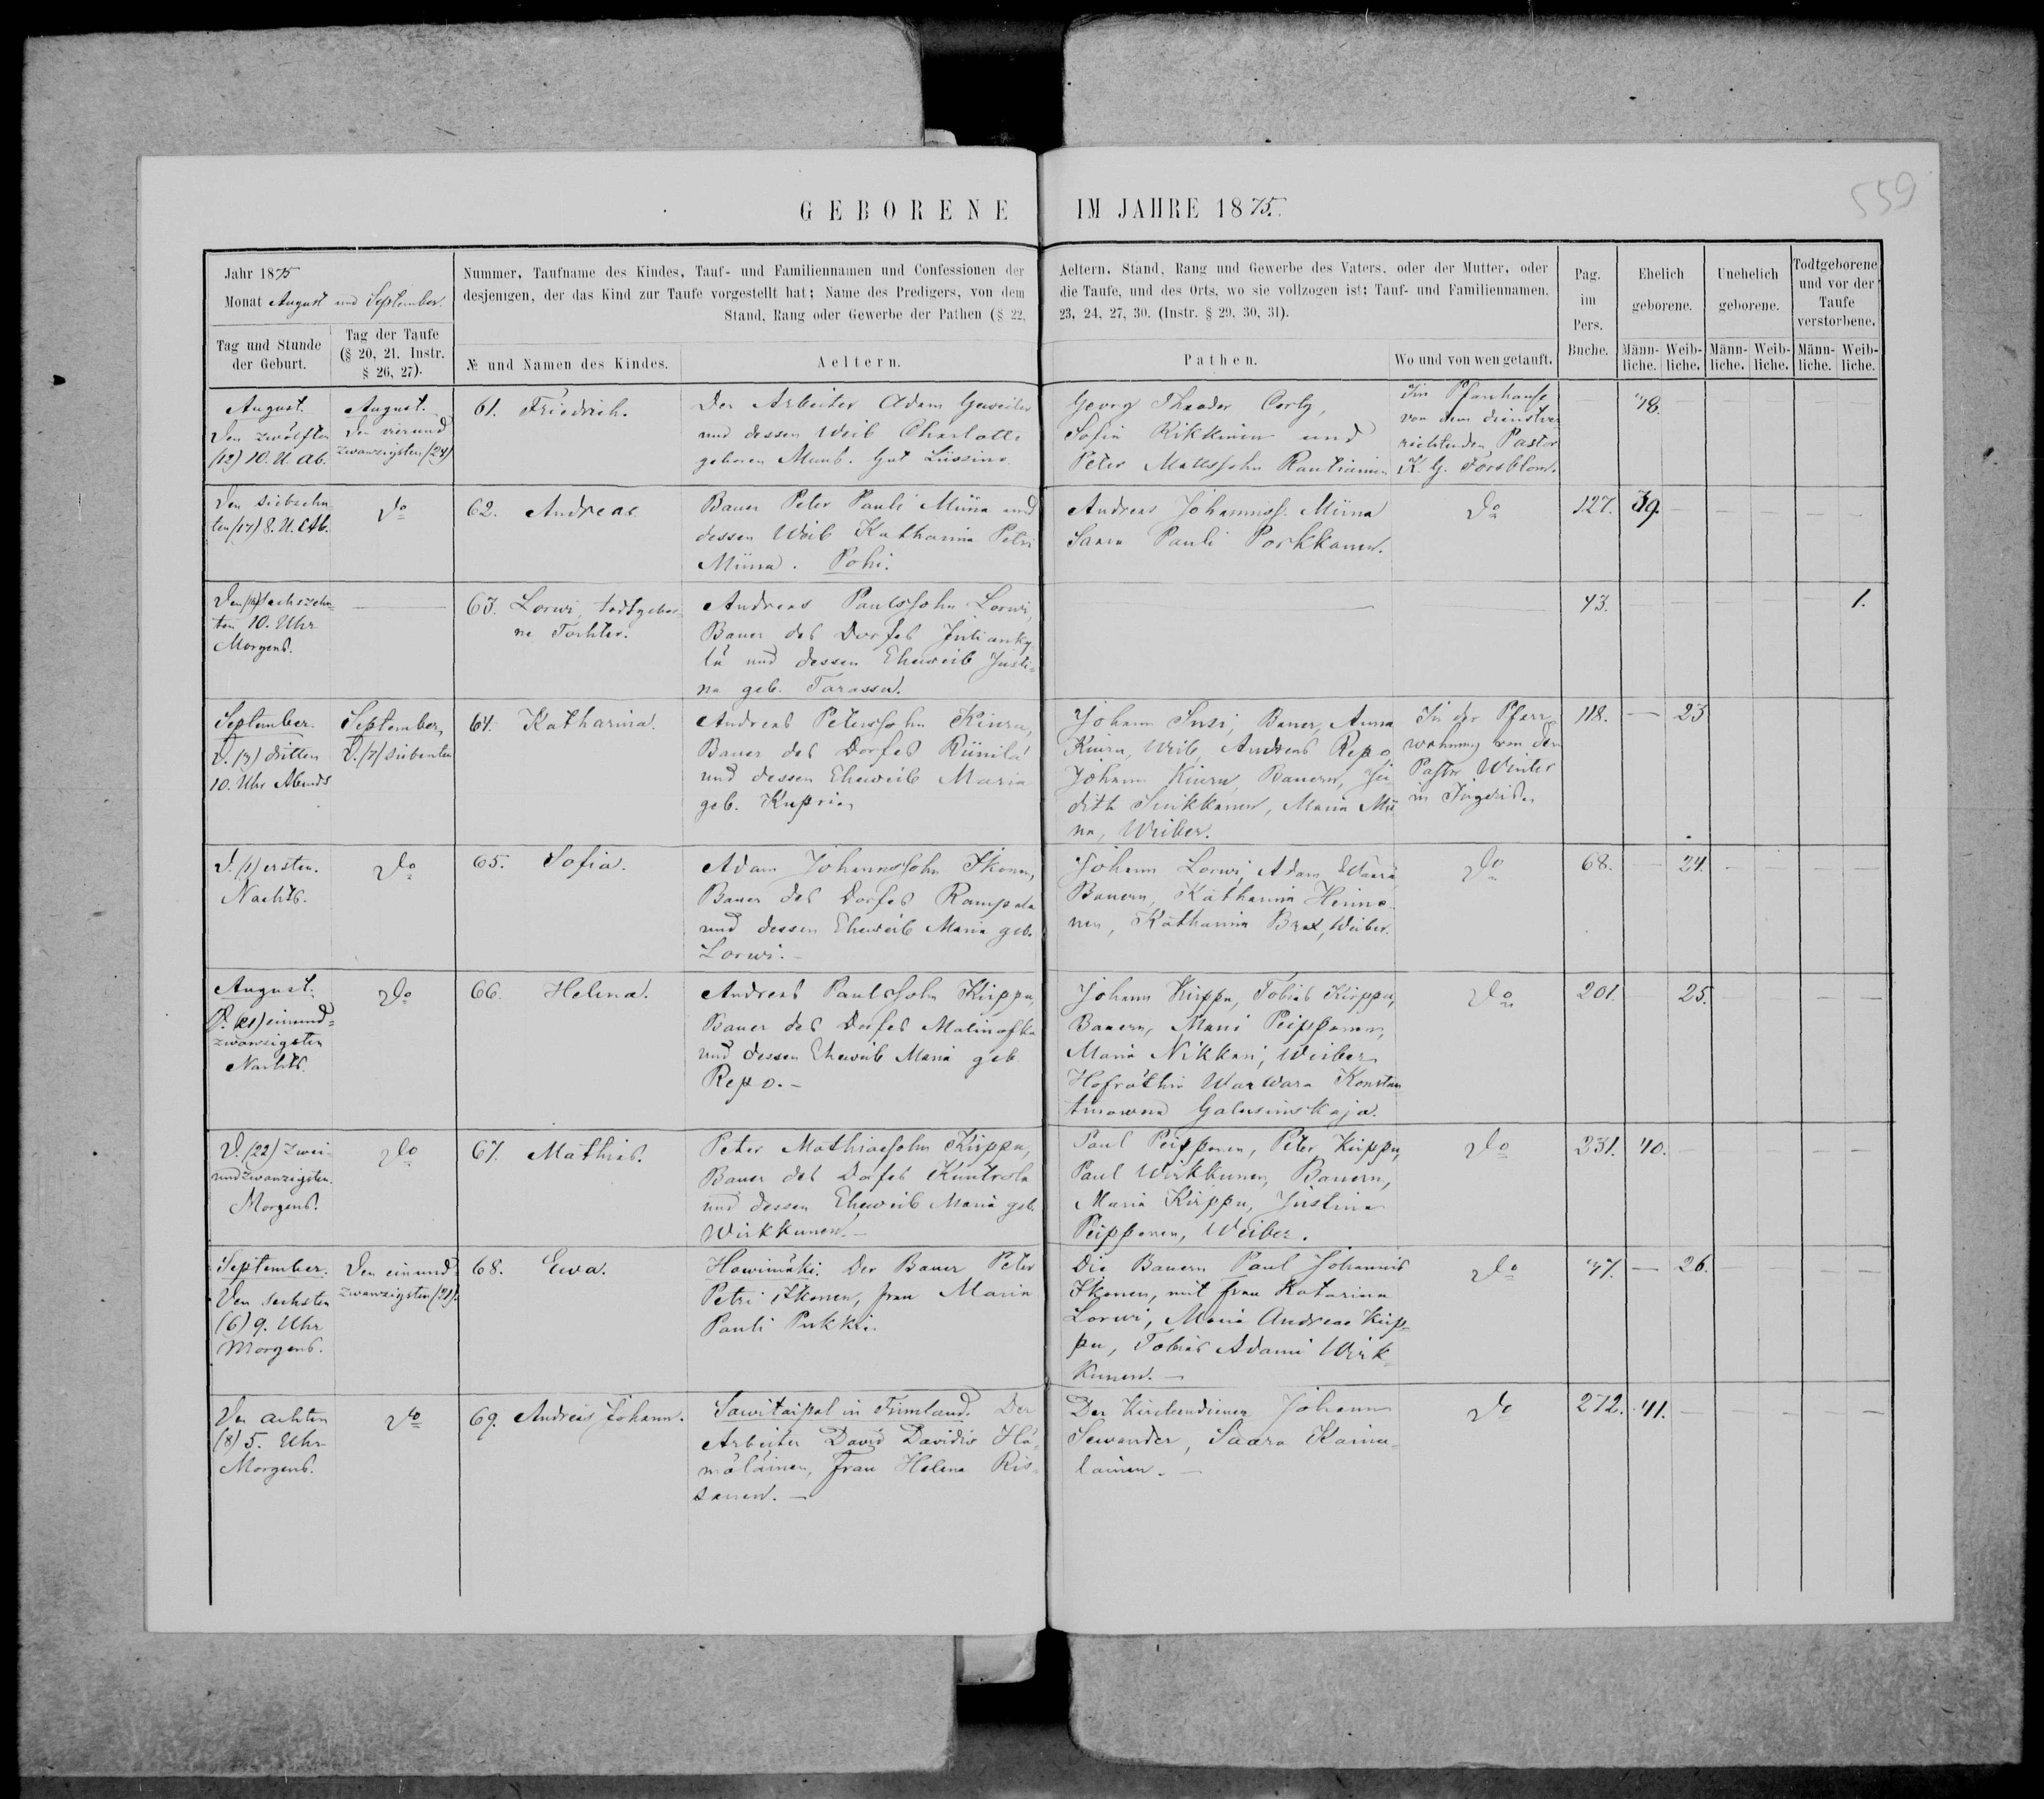 559
GEBORENE IM JAHRE 1875.
Jahr 1875
Monat August und September.
Nummer, Taufname des Kindes, Tauf- und Familiennamen und Confessionen der Aeltern, Stand, Rang und Gewerbe des Vaters, oder der Mutter, oder
desjenigen, der das Kind zur Taufe vorgestellt hat; Name des Predigers, von dem die Taufe, und des Orts, wo sie vollzogen ist; Tauf- und Familiennamen,
Stand, Rang oder Gewerbe der Pathen (§ 22, 23, 24, 27, 30. (Instr. § 29, 30, 31).
Tag und Stunde
der Geburt.
Tag der Taufe
(§ 20, 21. Instr.
§ 26, 27).
№ und Namen des Kindes.
Aeltern.
Pathen.
Wo und von wem getauft.
Pag.
im
Pers.
Buche.
Ehelich
geborene.
Unehelich
geborene.
Todtgeborene
und vor der
Taufe
verstorbene.
Männ-
liche.
Weib-
liche.
Männ-
liche.
Weib-
liche.
Männ-
liche.
Weib-
liche.
August.
Den zwölften
(12) 10. U. Ab.
August.
Den vierund
zwanzigsten (24)
61. Friedrich.
Der Arbeiter Adam
und dessen Weib Charlotte
geboren Gut
Georg Theodor
Sofia Rikkinen und
Peter Rautiainen
Im Pfarrhause
von dem dienstver
richtenden Pastor
K. G. Forsblom.
Den siebzehn
ten (17) 8. U. Ab.
do
62. Andreas
Bauer Peter Pauli Miina und
dessen Weib Katharina Petri
Miina. Pohi.
Andreas Johannss. Miina
Saara Pauli Porkkanen.
do
127. 39.
Den (16) sechszehn-
ten 10. Uhr
Morgens.
63. Lorwi, todtgebor
ne Tochter.
Andreas Paulssohn Lorwi,
Bauer des Dorfes Julianky
lä und dessen Eheweib Justi-
na geb. Tarassu.
43. 1.
September.
D. (3) dritten
10. Uhr Abends
September,
D. (7) siebenten
64. Katharina.
Andreas Peterssohn Kiuru,
Bauer des Dorfes Riinilä
und dessen Eheweib Maria
geb. Kupria
Johann Susi, Bauer, Anna
Kiuru, Weib, Andreas Repo
Johann Kiuru, Bauern, Ju
dith Sinkkanen, Maria Mii
na, Weiber.
In der Pfarr
wohnung von dem
Pastor Winter
in
118. 23
D. (1) ersten.
Nachts.
do
65. Sofia.
Adam Johannssohn Ikonen,
Bauer des Dorfes Rampala
und dessen Eheweib Maria geb.
Lorwi.
Johann Lorwi, Adam
Bauern, Katharina Heino
nen, Katharina Brax, Weiber.
do
68. 24.
August.
D. (21) einund-
zwanzigsten
Nachts.
do
66. Helena.
Andreas Paulssohn Kirppu,
Bauer des Dorfes Malinofka
und dessen Eheweib Maria geb.
Repo.
Johann Kirppu, Tobias Kirppu,
Bauern, Maria Peipponen,
Maria Nikkari, Weiber
Hofräthin Warwara Konstan
tinowna Galusinskaja.
do
201. 25.
D. (22) zwei-
undzwanzigsten.
Morgens.
do
67. Mathias.
Peter Mathiassohn Kirppu,
Bauer des Dorfes
und dessen Eheweib Maria geb.
Wirkkunen.
Paul Peipponen, Peter Kirppu,
Paul Wirkkunen, Bauern,
Maria Kirppu, Justina
Peipponen, Weiber.
do
231. 40.
September.
Den sechsten
(6) 9. Uhr
Morgens.
Den einund-
zwanzigsten (21).
68. Ewa.
Howimäki. Der Bauer Peter
Petri Ikonen, frau Maria
Pauli Pukki.
Die Bauern Paul Johannis
Ikonen, mit frau Katarina
Lorwi, Maria Andreas Kirp-
pu, Tobias Adami Wirk
kunen.
do
37. 26.
Den achten
(8) 5. Uhr
Morgens.
do
69. Andreas Johann.
Sawitaipal in Finnland. Der
Arbeiter David Davidis Hä-
mäläinen, frau Helena Ris-
sanen.
Der Kirchendiener Johann
Sewander, Saara Kainu-
lainen.
do
272. 41.